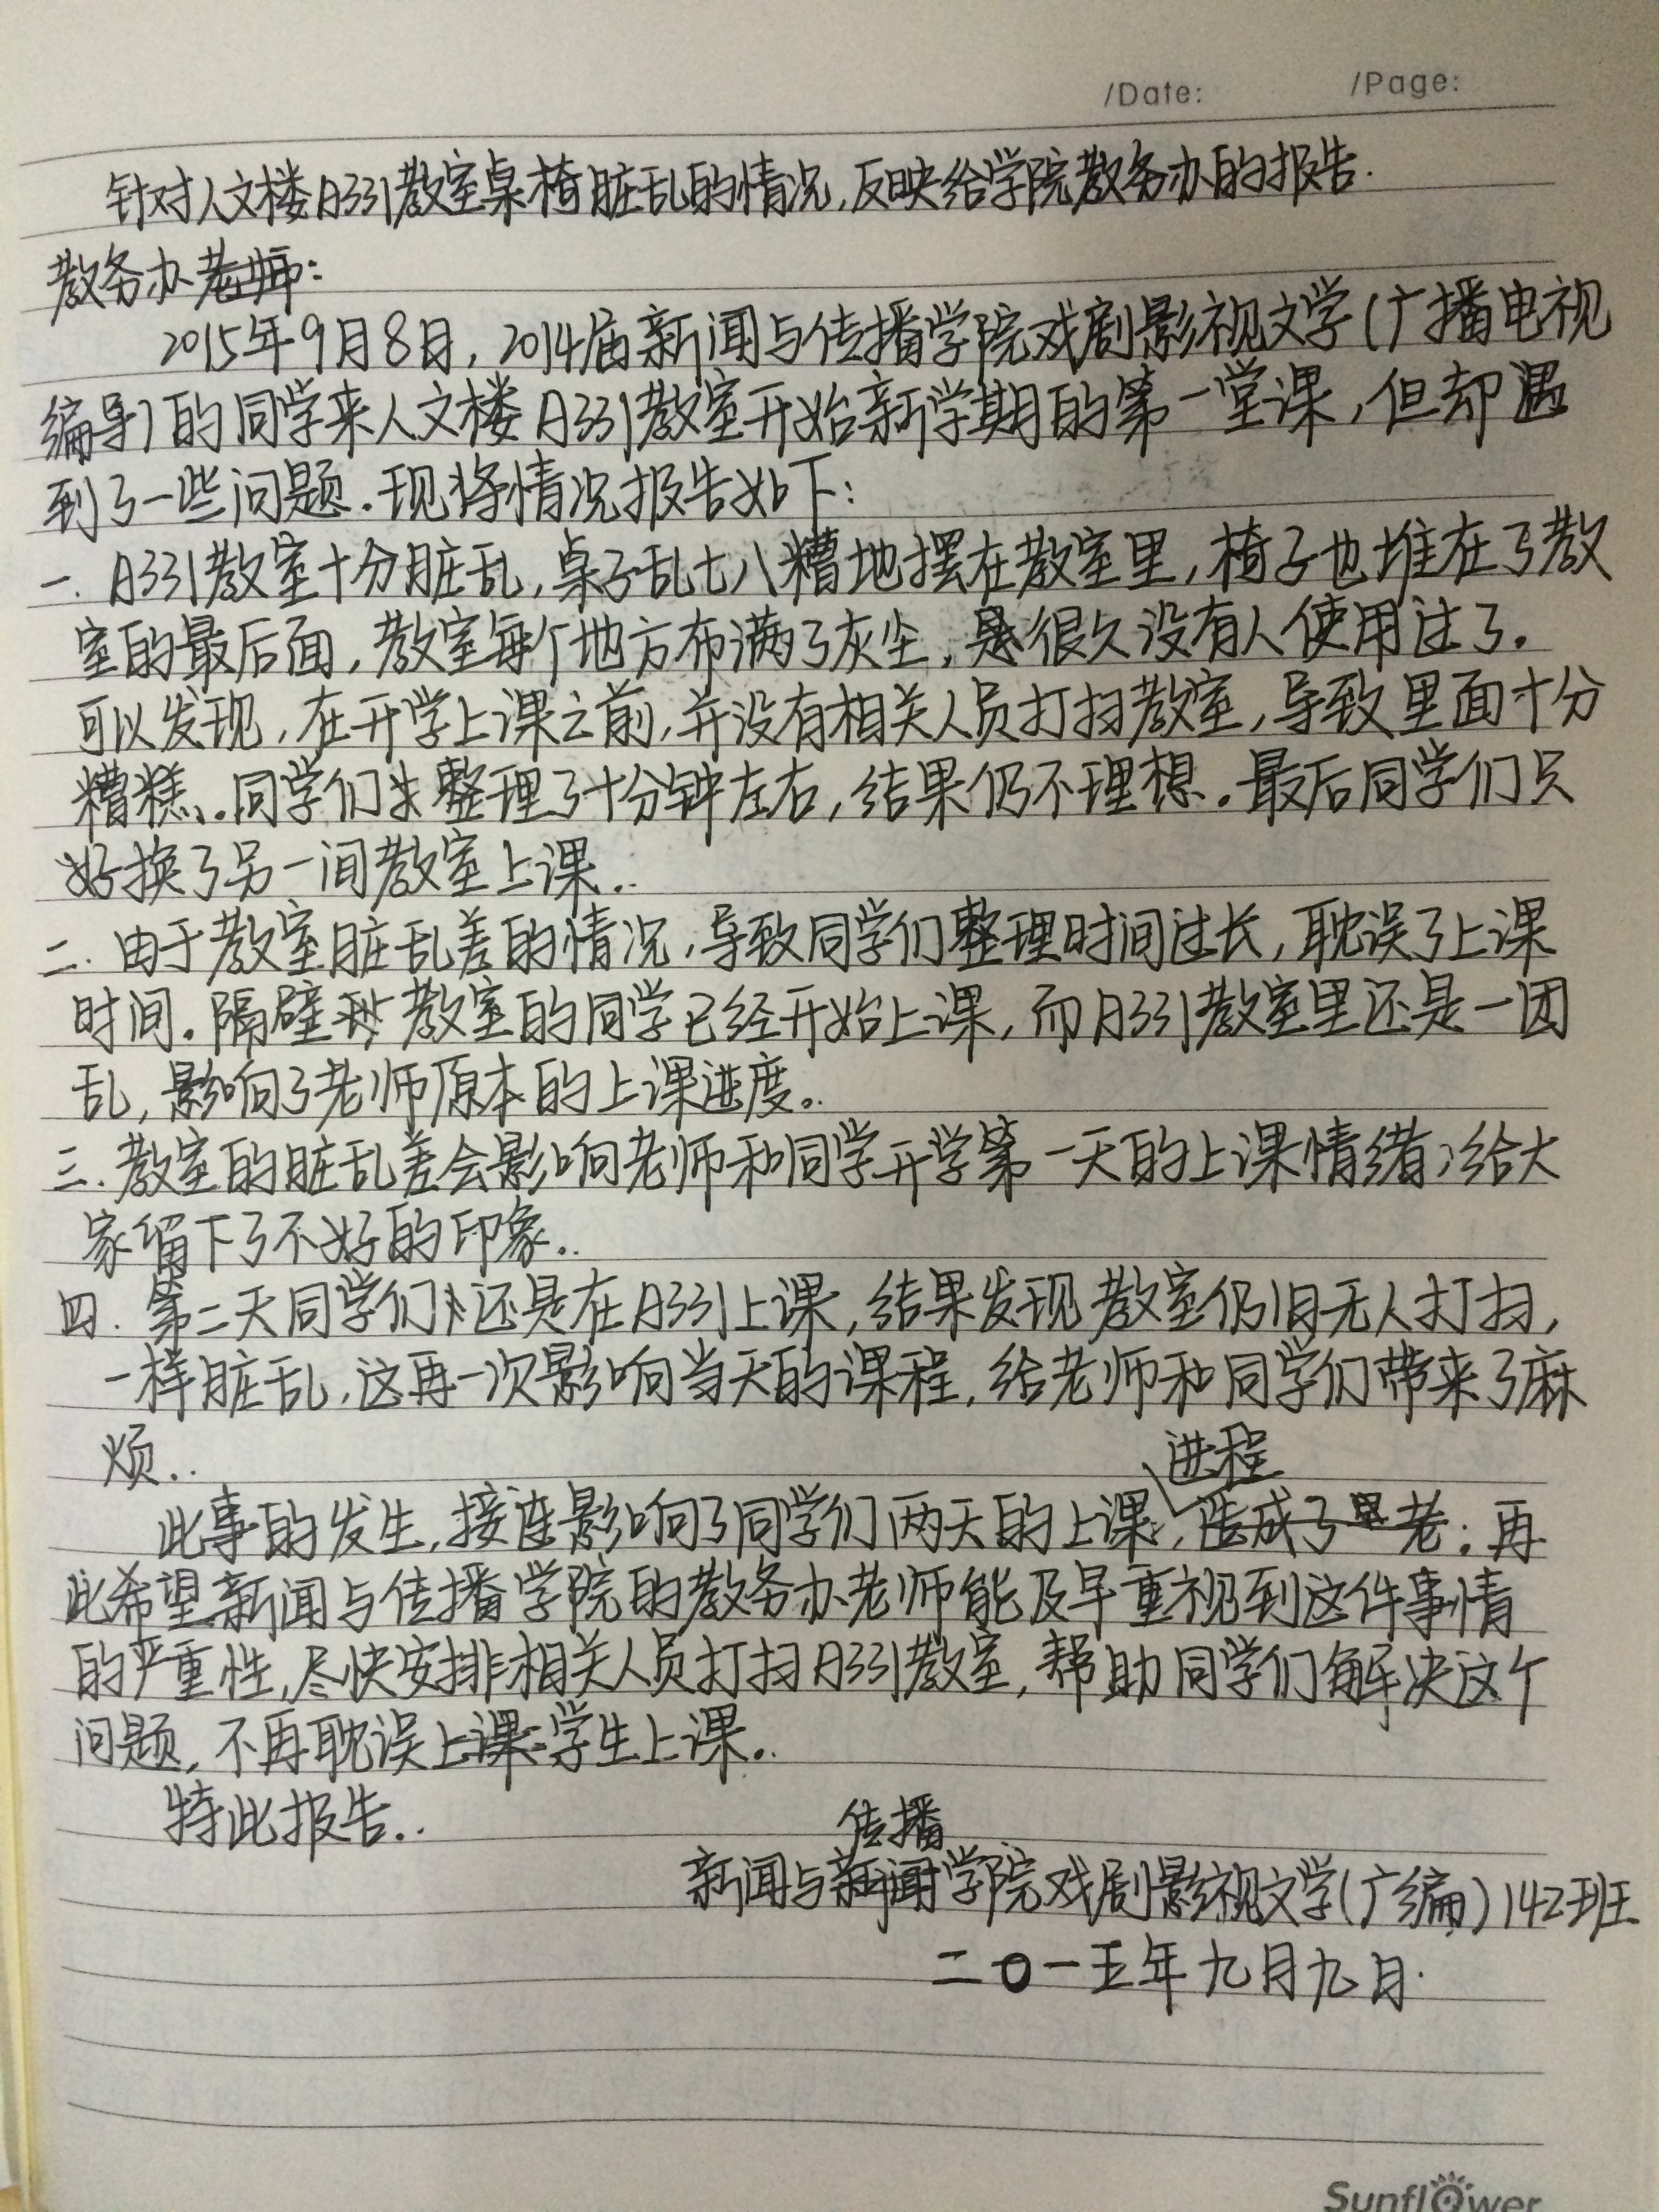 /Date: /Page:
针对人文楼A331教室桌椅脏乱的情况,反映给学院教务办的报告.
教务办老师:
2015年9月8日,2014届新闻与传播学院戏剧影视文学(广播电视
编导)的同学来人文楼A331教室开始新学期的第一堂课,但却遇
到了一些问题.现将情况报告如下:
一.A331教室十分脏乱,桌子乱七八糟地摆在教室里,椅子也堆在了教
室的最后面,教室每个地方布满了灰尘,是很久没有人使用过了.
可以发现,在开学上课之前,并没有相关人员打扫教室,导致里面十分
糟糕.同学们整理了十分钟左右,结果仍不理想.最后同学们只
好换了另一间教室上课.
二.由于教室脏乱差的情况,导致同学们整理时间过长,耽误了上课
时间.隔壁教室的同学已经开始上课,而A331教室里还是一团
乱,影响了老师原本的上课进度.
三.教室的脏乱差会影响老师和同学开学第一天的上课情绪;给大
家留下了不好的印象.
四.第二天同学们还是在A331上课,结果发现教室仍旧无人打扫,
一样脏乱,这再一次影响当天的课程,给老师和同学们带来了麻
烦.
进程
此事的发生,接连影响了同学们两天的上课,造成了老.再
此希望新闻与传播学院的教务办老师能及早重视到这件事情
的严重性,尽快安排相关人员打扫A331教室,帮助同学们解决这个
问题,不再耽误上课学生上课.
特此报告.
传播
新闻与新闻学院戏剧影视文学(广编)142班
二〇一五年九月九日.
Sunflower